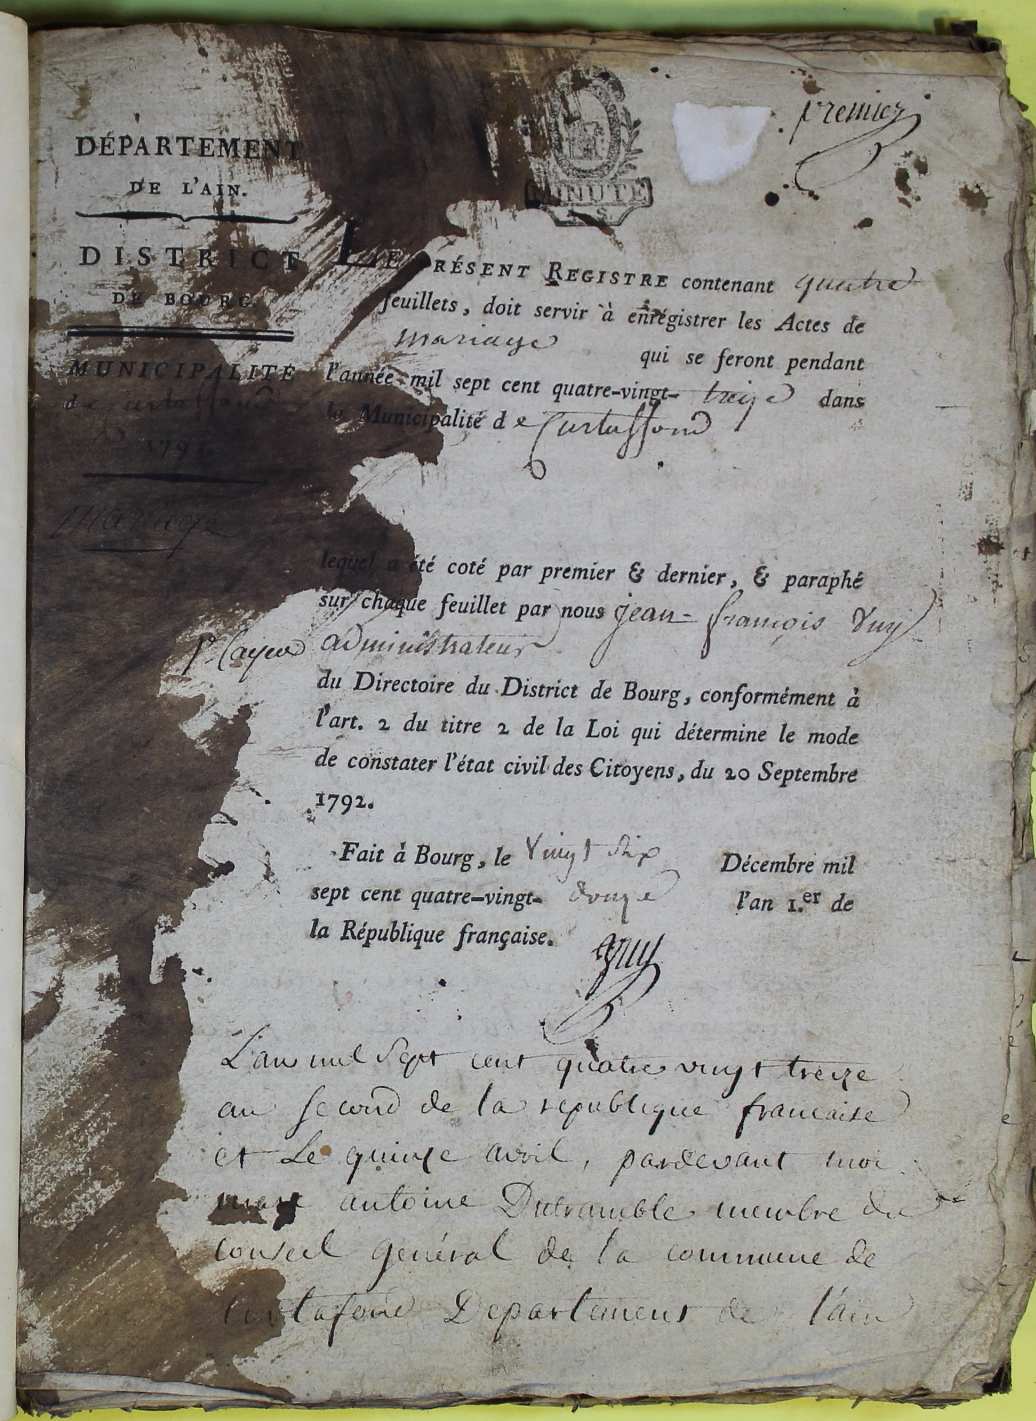 premier
MINUTE
DÉPARTEMENT
DE L'AIN.
DISTRICT
DE BOURG.
MUNICIPALITÉ
de Curtafond
179
Mariage
LE PRÉSENT REGISTRE contenant quatre
feuillets, doit servir à enrégistrer les Actes de
mariage qui se feront pendant
l'année mil sept cent quatre-vingt-treize dans
la Municipalité de Curtaffond
lequel a été coté par premier & dernier, & paraphé
sur chaque feuillet par nous jean-françois Vuy
administrateur
du Directoire du District de Bourg, conformément à
l'art. 2 du titre 2 de la Loi qui détermine le mode
de constater l'état civil des Citoyens, du 20 Septembre
1792.
Fait à Bourg, le Vingt Six Décembre mil
sept cent quatre-vingt-douze l'an 1.er de
la République française.
Vuy
L'an mil Sept cent quatre vingt treize
au second de la republique francaise
et Le quinze avril, pardevant moi
marc antoine Dutramble membre du
conseil général de la commune de
Curtafond Departement de l'ain